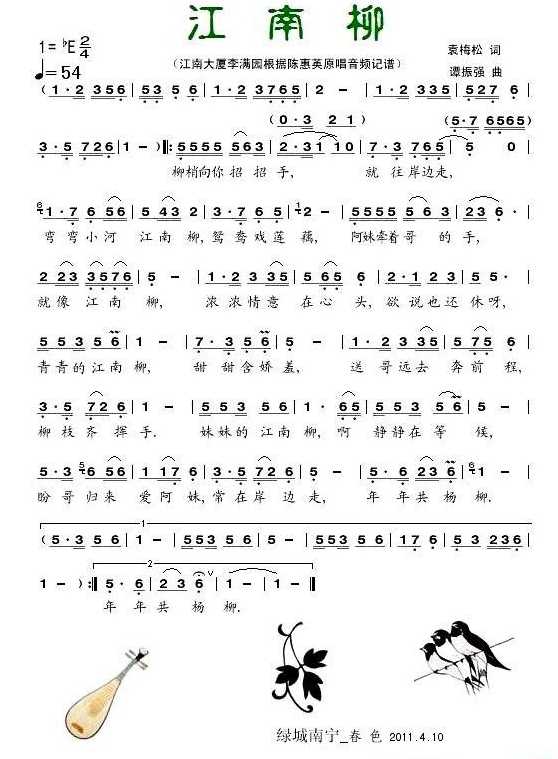 江南柳
1=♭E 2/4
♩=54
（江南大厦李满园根据陈惠英原唱音频记谱）
袁梅松 词
谭振强 曲
(1·2 356 | 5· 6 | 1·2 3765 | 2 - | 1·2 335 | 5·27 6
(0·3 2 1) (5·7 6565)
3·5 726 | 1 - ) ‖: 5555 563 | 2·31 10 | 7·3 765 | 5 0
柳梢向你招招手， 就往岸边走，
6 1·7 6 56 | 5 43 2 | 3·7 6 5 | 1 2 - | 5555 5 6 3 | 23 6·
弯弯小河 江南柳，鸳鸯戏莲藕， 阿妹牵着哥的手，
2 23 3576 | 5 - | 1·2 335 | 5 65 5 | 2·1 23 | 5·27 6
就像江南柳， 浓浓情意在心头，欲说也还休呀，
5 5 3 5 56 | 1 - | 7·3 5 6 | 5 - | 1·2 335 | 5 75 5
青青的江南柳， 甜甜含娇羞， 送哥远去奔前程，
3·5 72 6 | 1 - | 553 56 | 1 - 65 | 5 5 3 5 6 | 1 -
柳枝齐挥手． 妹妹的江南柳，啊 静静在等候，
5·3 56 5 | 1 17 6 | 3·2 235 | 2 - | 5· 6 | 23 6 | 6 1 -
盼哥归来爱阿妹，常在岸边走， 年年共杨柳．
1
(5·3 55 | 1 - | 553 55 | 1 - | 1·2 335 | 5·3 5 | 53 236
2
1 - ) :‖ 5· 6 | 23 6 ∨ | 1 - | 1 - ‖
年年共杨柳．
绿城南宁_春色 2011.4.10